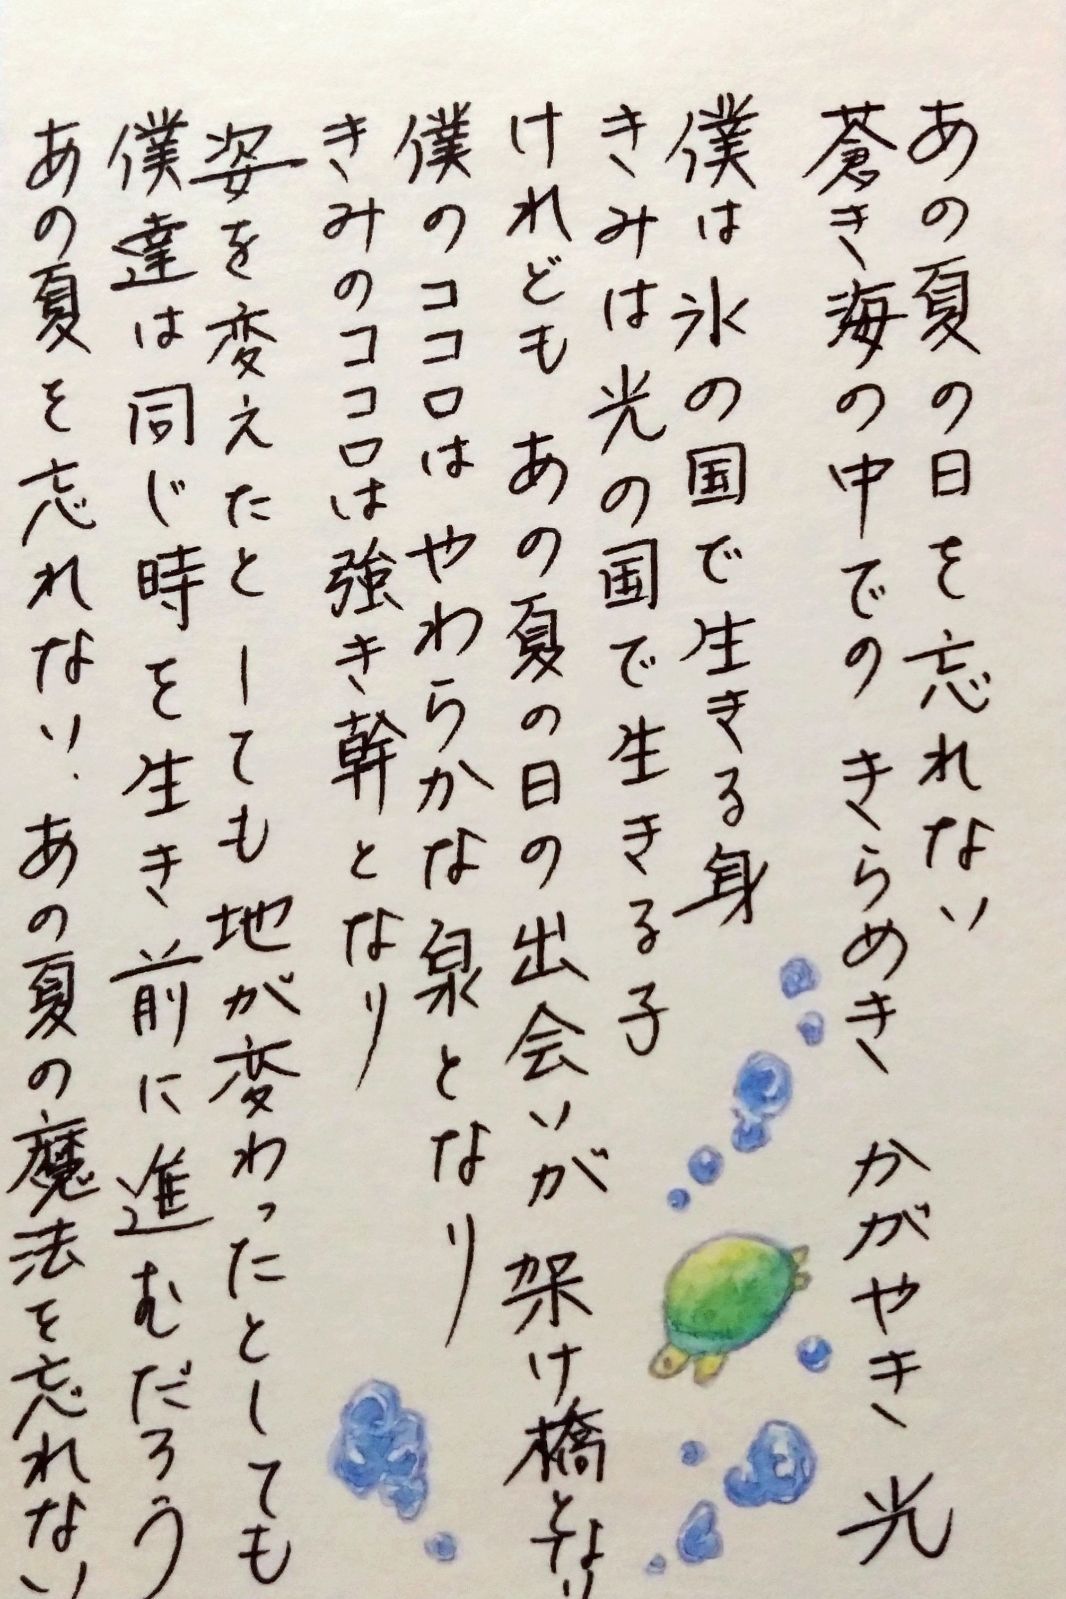 あの夏の日を忘れない
蒼き海の中での きらめき かがやき 光
僕は氷の国で生きる身
きみは光の国で生きる子
けれども あの夏の日の出会いが 架け橋となり
僕のココロは やわらかな泉となり
きみのココロは強き幹となり
姿を変えたとしても 地が変わったとしても
僕達は同じ時を生き 前に進むだろう
あの夏を忘れない. あの夏の魔法を忘れない